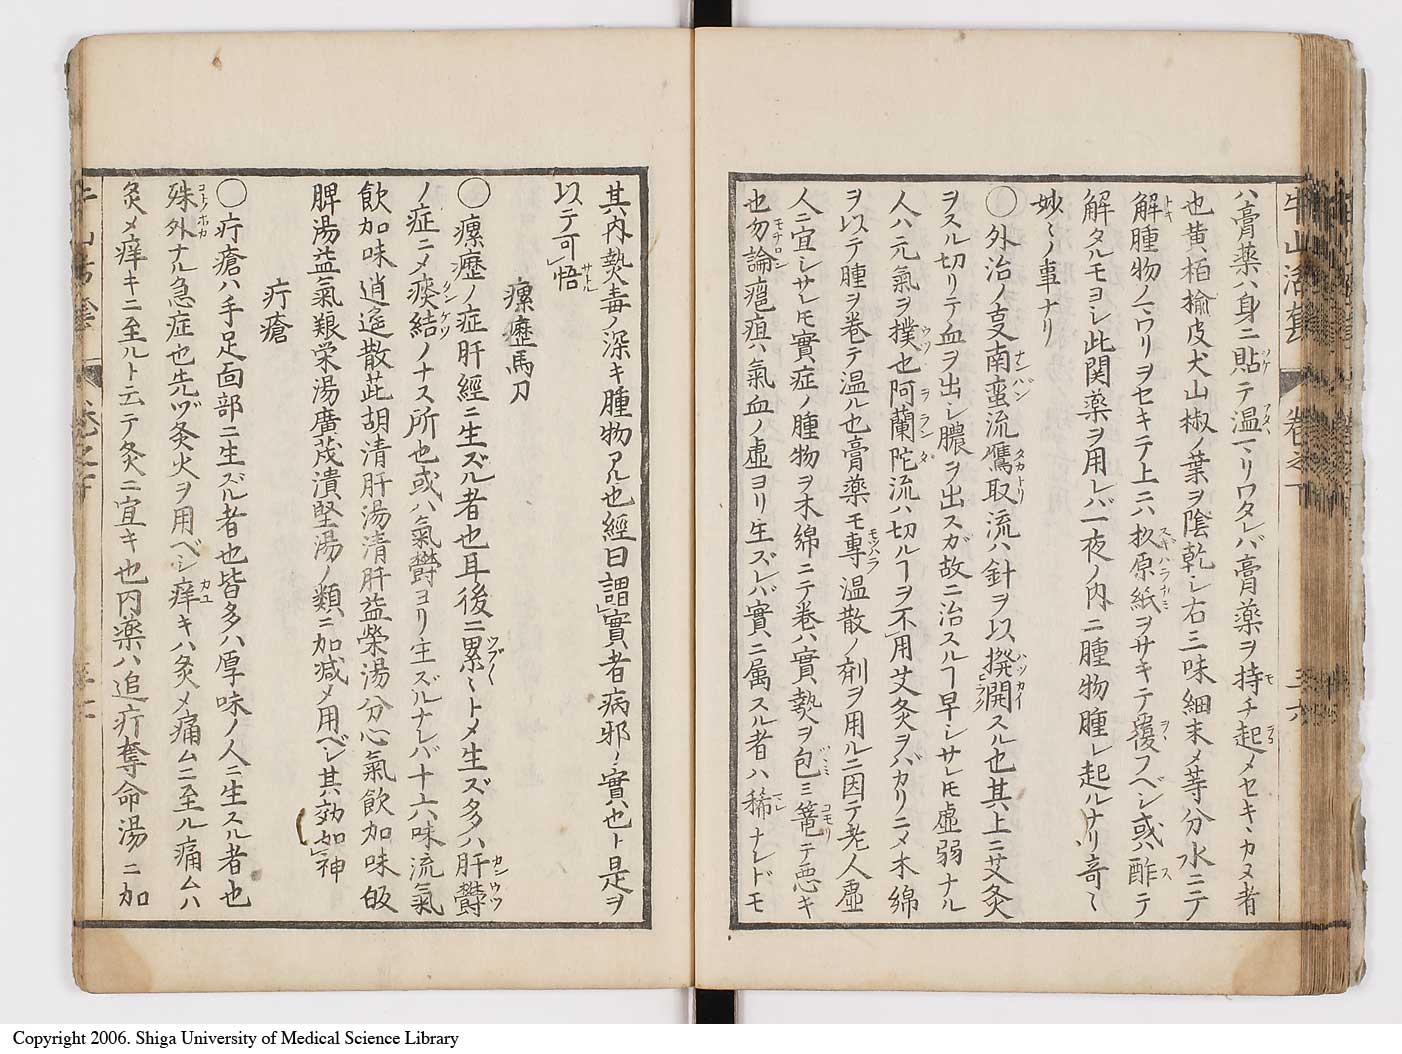 牛山活套 卷之下 三六
ハ膏藥ハ身ニ貼テ温マリワタレバ膏藥ヲ持チ起メセキ、カヌ者
也黄栢楡皮犬山椒ノ葉ヲ陰乾レ右三味細末メ等分水ニテ
解腫物ノマワリヲセキテ上ニハ杉原紙ヲサキテ覆フベシ或ハ酢ニテ
解タルモヨシ此関藥ヲ用レバ一夜ノ内ニ腫物腫レ起ルナリ竒〻
妙〻ノ事ナリ
○外治ノ叓南蛮流鷹取流ハ針ヲ以撥開スル也其上ニ艾灸
ヲスル切リテ血ヲ出シ膿ヲ出スガ故ニ治スルヿ早シサレ𪜈虚弱ナル
人ハ元氣ヲ撲也阿蘭陀流ハ切ルヿヲ不用艾灸ヲバカリニメ木綿
ヲ以テ腫ヲ卷テ温ル也膏藥モ專温散ノ剤ヲ用ルニ因テ老人虚
人ニ宜シサレ𪜈實症ノ腫物ヲ木綿ニテ卷ハ實熱ヲ包ミ篭テ悪キ
也勿論癰疽ハ氣血ノ虚ヨリ生ズレバ實ニ属スル者ハ稀ナレドモ
其内熱毒ノ深キ腫物アル也經曰謂實者病邪ノ實也ト是ヲ
以テ可悟
瘰癧馬刀
○瘰癧ノ症肝經ニ生ズル者也耳後ニ累〻トメ生ズ多ハ肝欝
ノ症ニメ痰結ノナス所也或ハ氣欝ヨリ生ズルナレバ十六味流氣
飲加味逍遙散茈胡清肝湯清肝益榮湯分心氣飲加味皈
脾湯益氣養栄湯廣茂潰堅湯ノ類ニ加减メ用ベシ其効如神
疔瘡
○疔瘡ハ手足面部ニ生ズル者也皆多ハ厚味ノ人ニ生スル者也
殊外ナル急症也先ヅ灸火ヲ用ベシ痒キハ灸メ痛ムニ至ル痛ムハ
灸メ痒キニ至ルト云テ灸ニ宜キ也内藥ハ追疔奪命湯ニ加